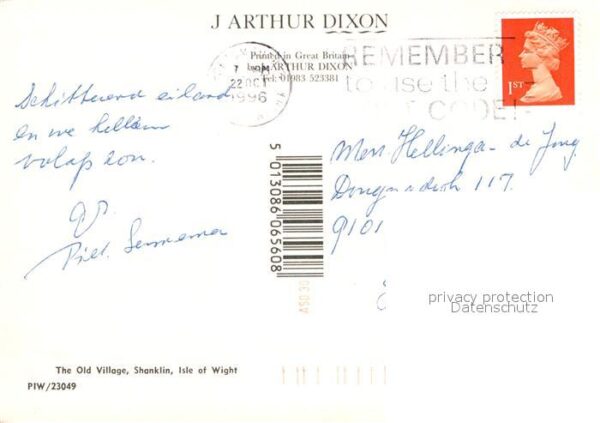 J ARTHUR DIXON
Printed in Great Britain
by J ARTHUR DIXON
Tel: 01983 523381
22 OC
1996
REMEMBER
to use the
CODE!
1ST
Schitterend eiland
en we hebben
volop zon.
Piet
5 013086 065608
Mevr. Hellinga - de Jong
117.
9101
privacy protection
Datenschutz
The Old Village, Shanklin, Isle of Wight
PIW/23049